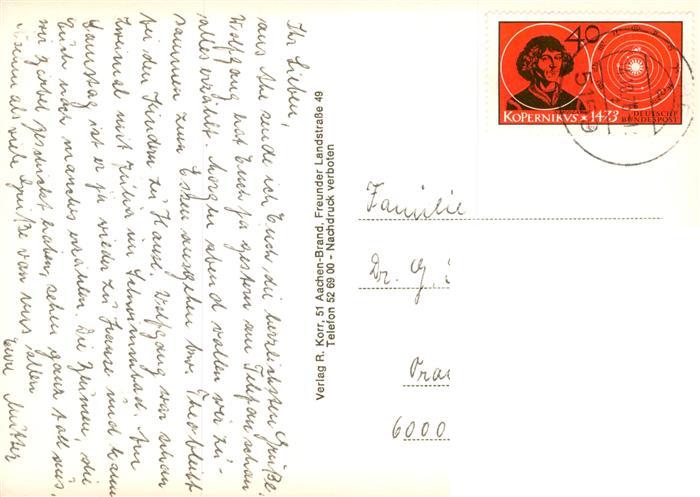 Ihr Lieben,
aus Aachen sende ich Euch die herzlichsten Grüße.
Wolfgang hat Euch ja gestern am Telefon schon
alles erzählt. Morgen abend wollen wir zu-
sammen zum Essen ausgehen bzw. Theo bleibt
bei den Kindern zu Hause. Wolfgang war schon
zweimal mit Julia im Schwimmbad. Am
Samstag ist er ja wieder zu Hause und kann
Euch noch manches erzählen. Die Zimmer, die
wir gestrichen haben, sehen ganz toll aus.
Nun also viele Grüße von uns allen
Eure Mutter
Verlag R. Korr, 51 Aachen-Brand, Freunder Landstraße 49
Telefon 52 69 00 - Nachdruck verboten
40
KOPERNIKVS ★ 1473
DEUTSCHE
BUNDESPOST
Familie
Dr. G.
6000